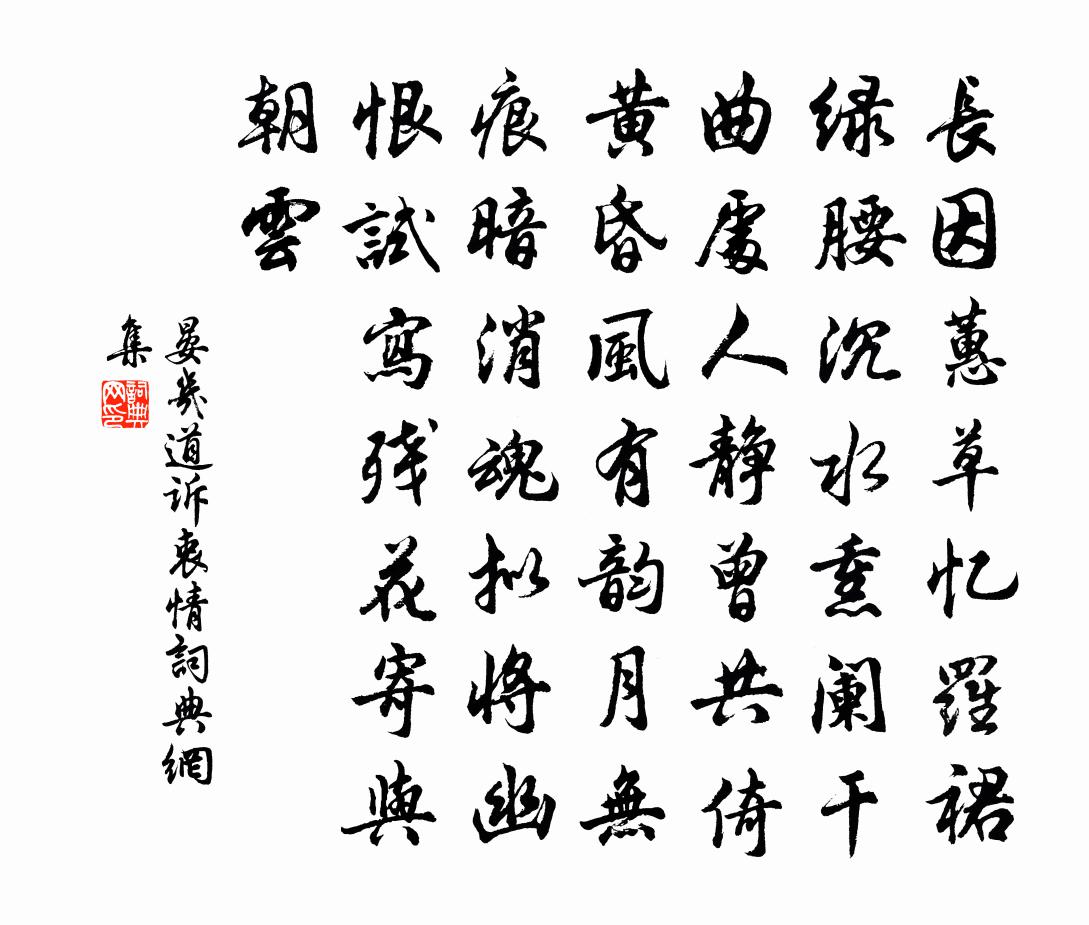 長因蕙草忆羅裙
绿腰沉水熏阑干
曲處人静曾共倚
黄昏風有韵月無
痕暗消魂拟将幽
恨試寫残花寄與
朝雲
晏幾道诉衷情詞典網
集
詞典
网印